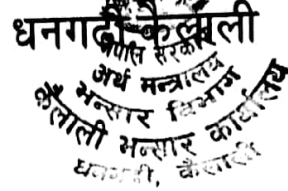 धनगढी कैलाली
नेपाल सरकार
अर्थ मन्त्रालय
भन्सार विभाग
कैलाली भन्सार कार्यालय
धनगढी, कैलाली